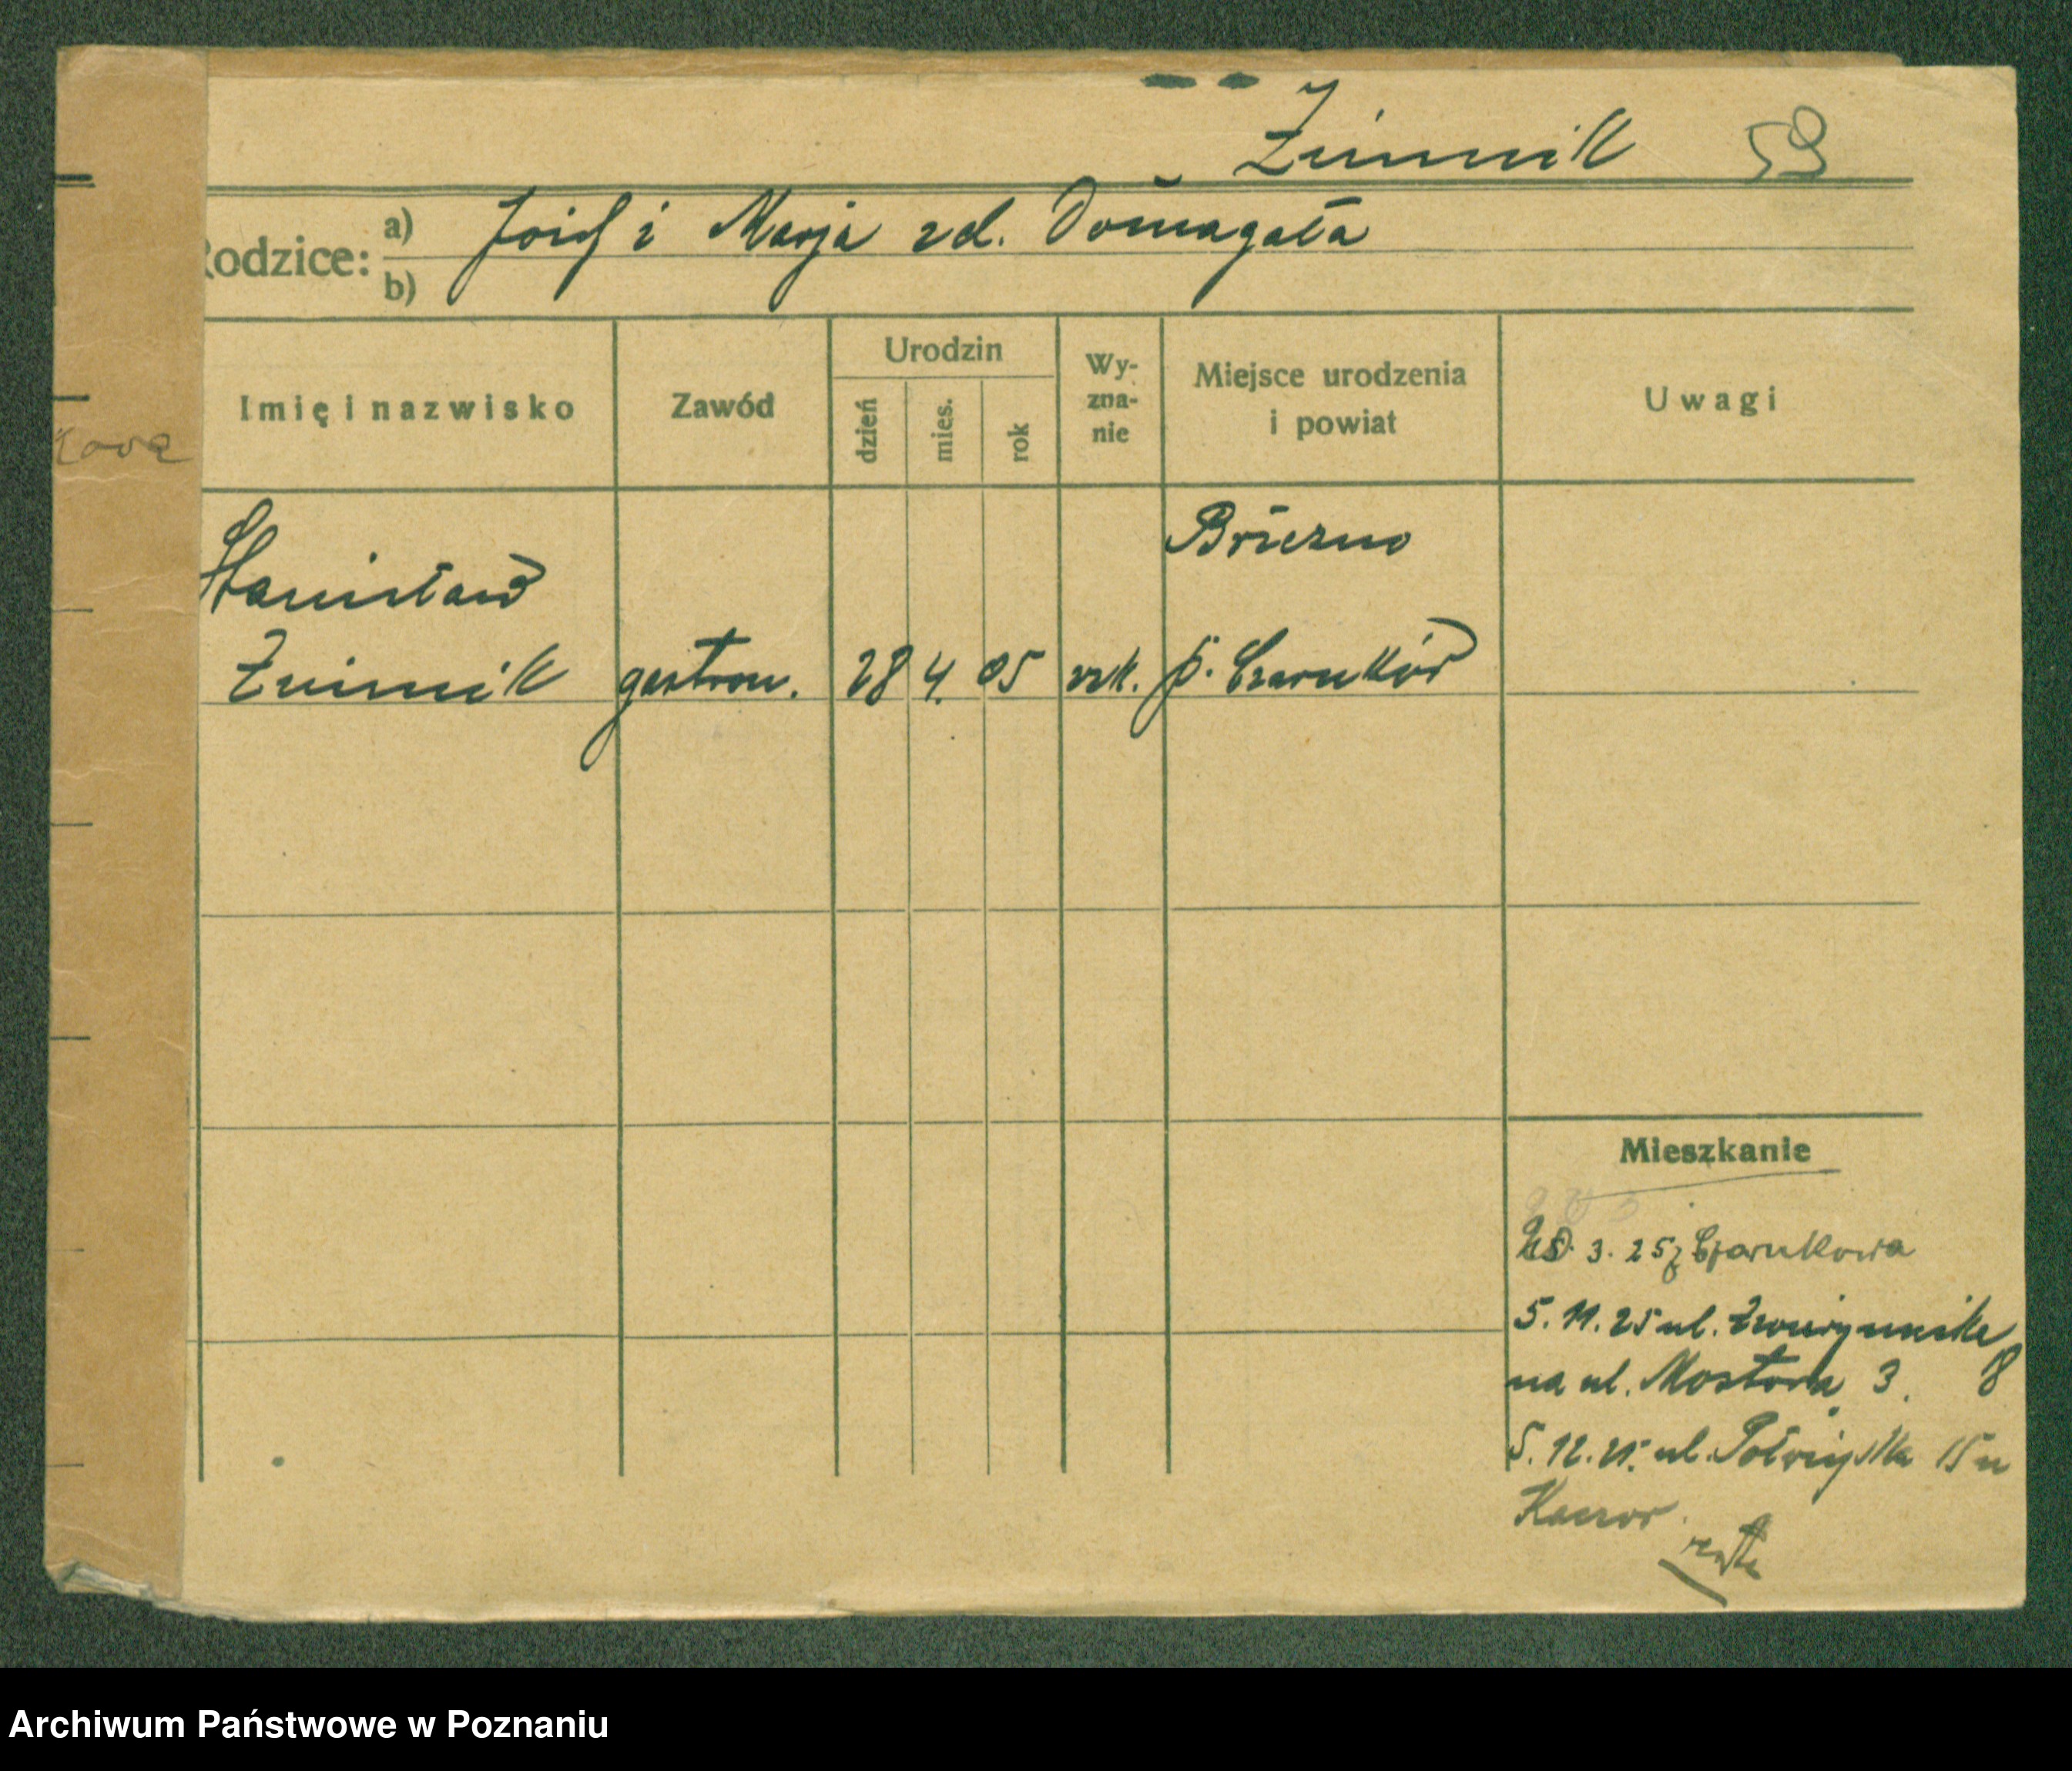 Zimnik 59
Rodzice: a) Józef i Marja zd. Domagała
b)
Imię i nazwisko
Zawód
Urodzin
dzień
mies.
rok
Wy-
zna-
nie
Miejsce urodzenia
i powiat
Uwagi
Stanisław
Zimnik gastron. 28 4. 05 rzk.
Brzezno
p. Czarnków
Mieszkanie
3. 25 z Czarnkowa
5. 11. 25 ul.
8
na ul. Mostowa 3.
5. 12. 25. ul. Półwiejska 15 u
Kaczor.
Archiwum Państwowe w Poznaniu